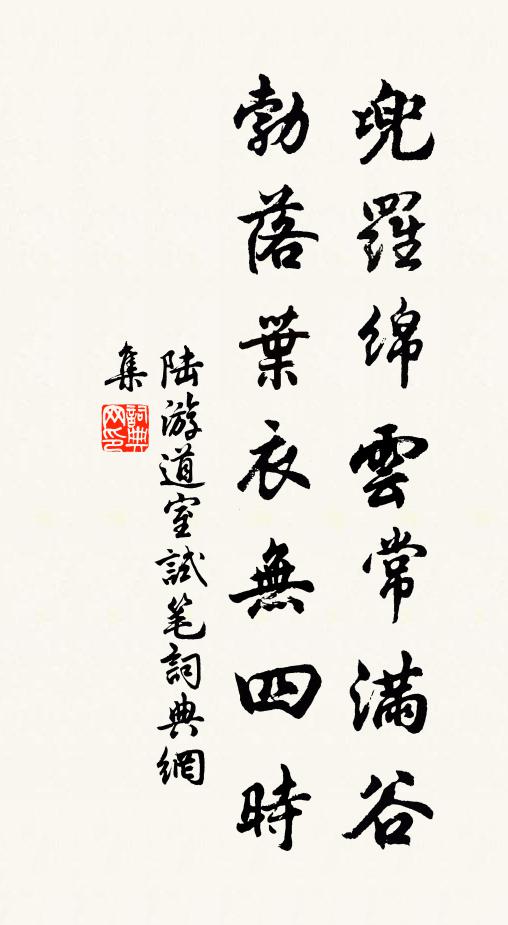 兜羅綿雲常滿谷
勃落葉衣無四時
陆游道室試笔詞典網
集
詞典
网印